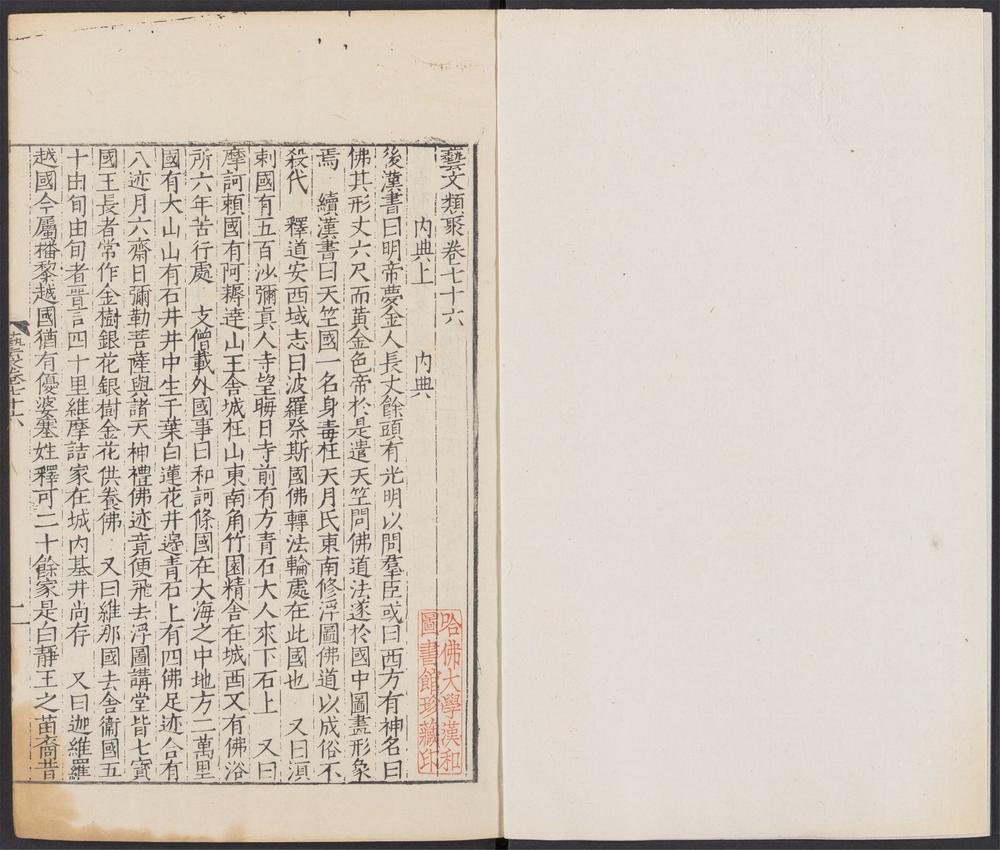 藝文類聚卷七十六
內典上　內典
後漢書曰明帝夢金人長丈餘頭有光明以問羣臣或曰西方有神名曰
佛其形丈六尺而黃金色帝於是遣天竺問佛道法遂於國中圖畫形象
焉　續漢書曰天竺國一名身毒在天月氏東南修浮圖佛道以成俗不
殺代　釋道安西域志曰波羅奈斯國佛轉法輪處在此國也　又曰湏
剌國有五百沙彌真人寺望晦日寺前有方青石大人來下石上　又曰
摩訶賴國有阿耨達山王舍城在山東南角竹園精舍在城西又有佛浴
所六年苦行處　支僧載外國事曰和訶條國在大海之中地方二萬里
國有大山山有石井井中生千葉白蓮花井邊青石上有四佛足迹合有
八迹月六齋日彌勒菩薩與諸天神禮佛迹竟便飛去浮圖講堂皆七寶
國王長者常作金樹銀花銀樹金花供養佛　又曰維那國去舍衞國五
十由旬由旬者晉言四十里維摩詰家在城內基井尚存　又曰迦維羅
越國今屬播黎越國猶有優婆塞姓釋可二十餘家是白靜王之苗裔昔
哈佛大學漢和
圖書館珍藏印